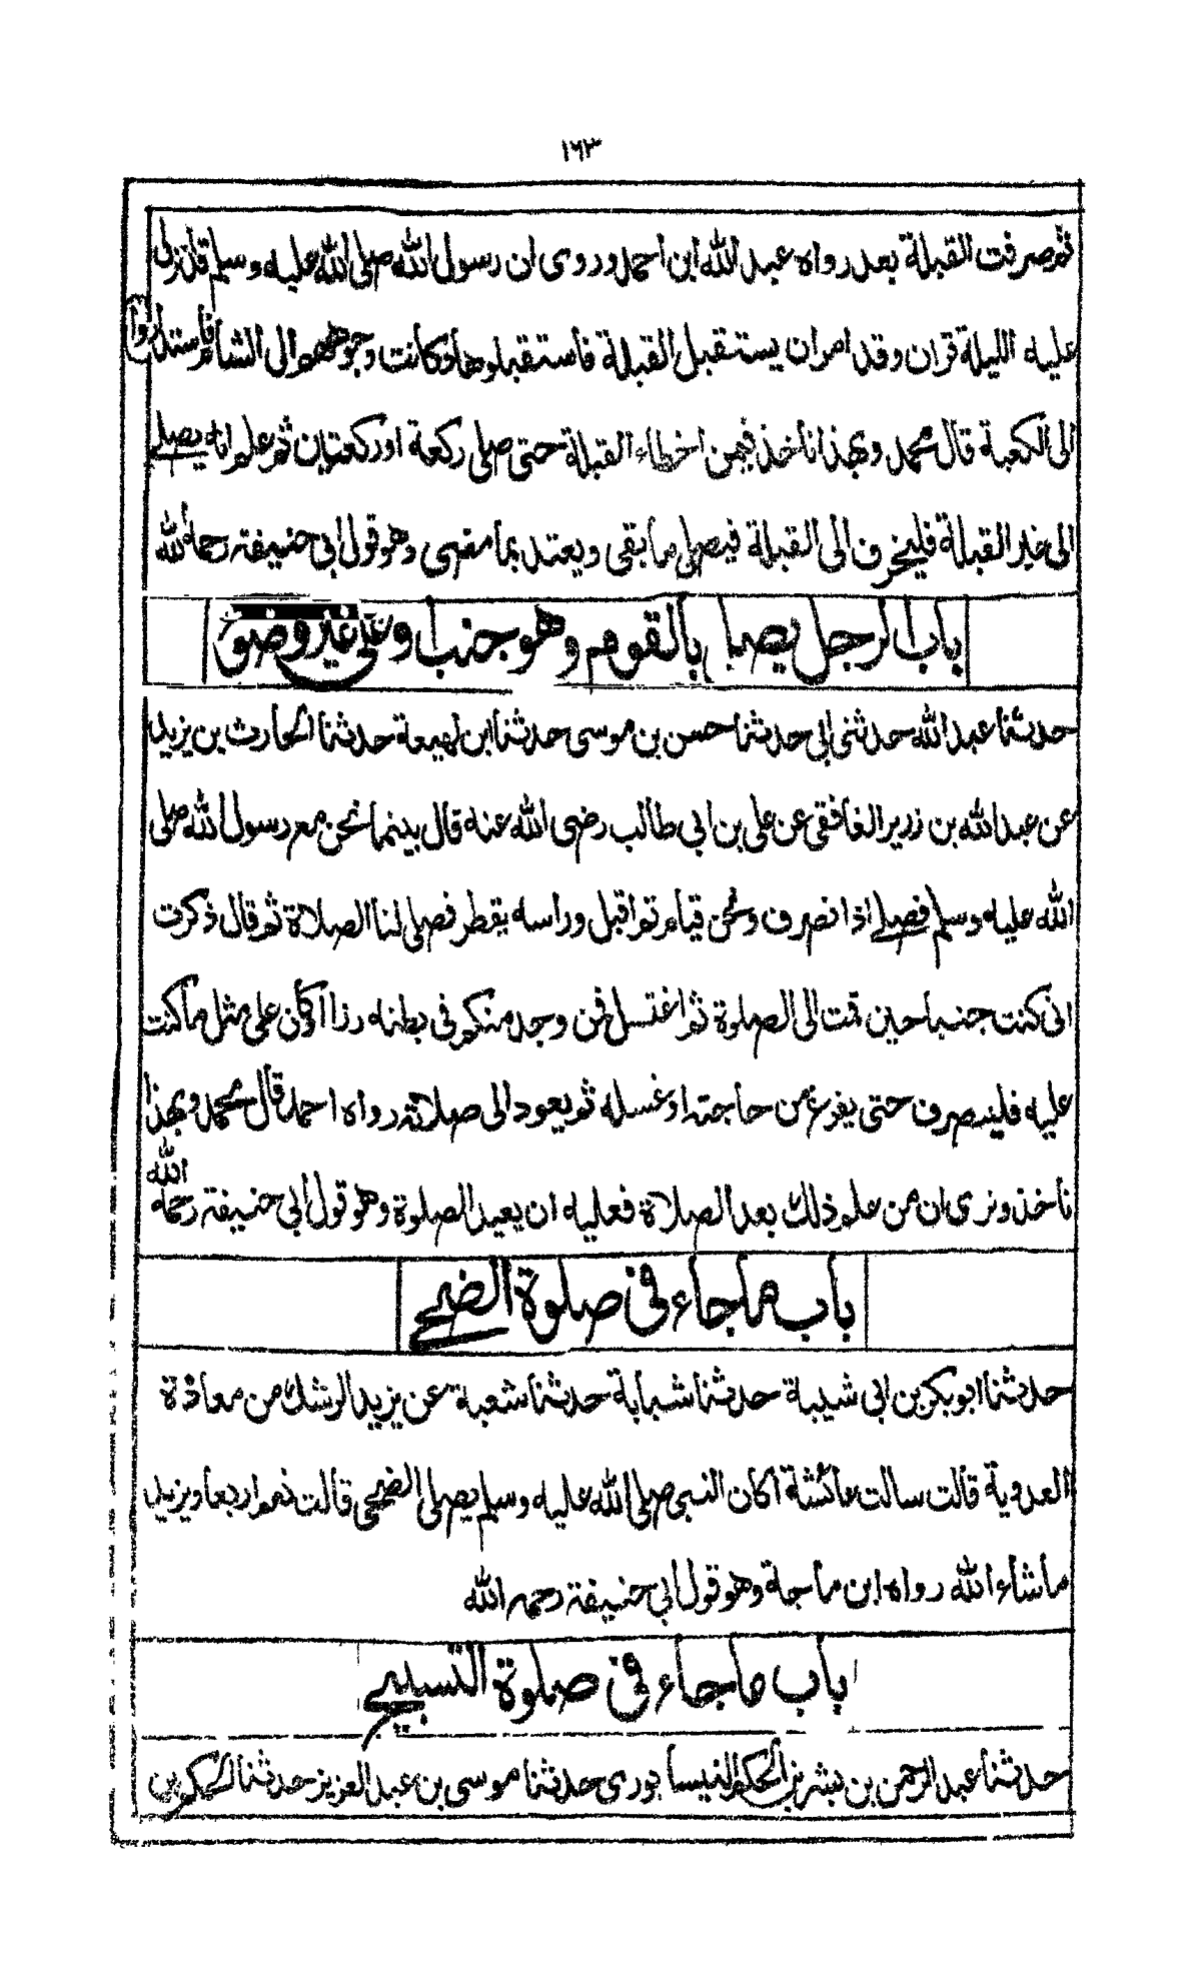 ١٦٣
ثم صرفت القبلة بعد رواه عبد الله ابن احمد وروى ان رسول الله صلى الله عليه وسلم قد انزل
عليه الليلة قران وقد امر ان يستقبل القبلة فاستقبلوها وكانت وجوههم الى الشام فاستداروا
الى الكعبة قال محمد وبهذا ناخذ فيمن اخطاء القبلة حتى صلى ركعة او ركعتين ثم علم انه يصلى
الى غير القبلة فلينحرف الى القبلة فيصلى ما بقى ويعتد بما مضى وهو قول ابى حنيفة رحمه الله
باب الرجل يصلى بالقوم وهو جنب او على غير وضوء
حدثنا عبد الله حدثنى ابى حدثنا حسن بن موسى حدثنا ابن لهيعة حدثنا الحارث بن يزيد
عن عبد الله بن زرير الغافقى عن على بن ابى طالب رضى الله عنه قال بينما نحن مع رسول الله صلى
الله عليه وسلم فصلى اذا نصرف ونحن قيام ثم اقبل وراسه يقطر فصلى لنا الصلاة ثم قال ذكرت
انى كنت جنبا حين قمت الى الصلوة ثم اغتسل فمن وجد منكم فى بطنه رزا او كان على مثل ما كنت
عليه فلينصرف حتى يفرغ من حاجته او غسله ثم يعود الى صلاته رواه احمد قال محمد وبهذا
ناخذ ونرى ان من علم ذلك بعد الصلاة فعليه ان يعيد الصلوة وهو قول ابى حنيفة رحمه الله
باب ما جاء فى صلوة الضحى
حدثنا ابو بكر بن ابى شيبة حدثنا شبابة حدثنا شعبة عن يزيد الرشك من معاذة
العدوية قالت سالت عائشة اكان النبى صلى الله عليه وسلم يصلى الضحى قالت نعم اربعا ويزيد
ما شاء الله رواه ابن ماجة وهو قول ابى حنيفة رحمه الله
باب ما جاء فى صلوة التسبيح
حدثنا عبد الرحمن بن بشر بن الحكم النيسا بورى حدثنا موسى بن عبد العزيز حدثنا الحكم بن